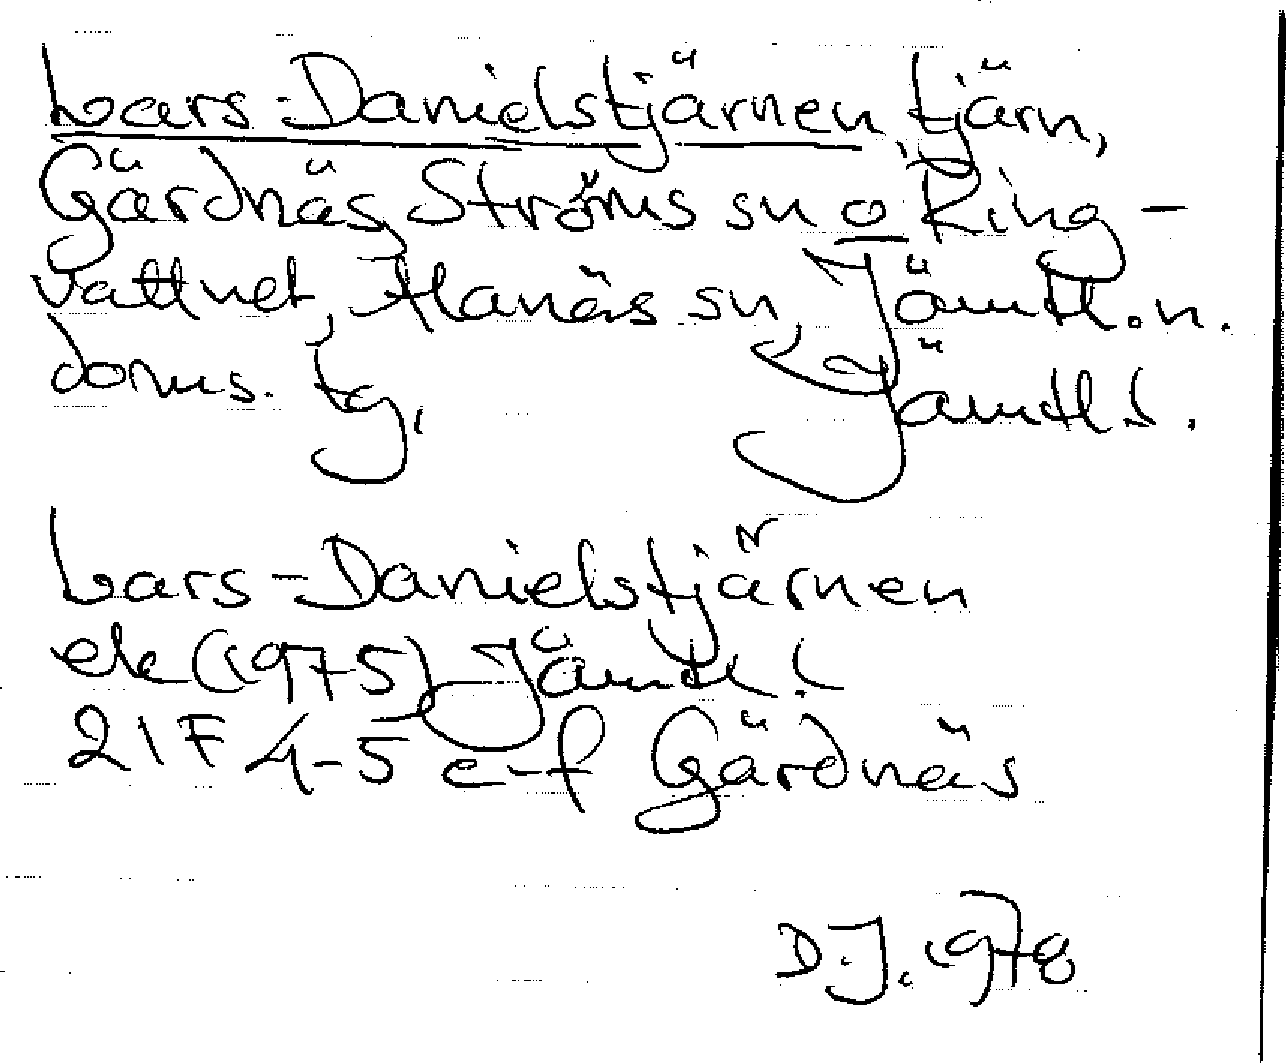 Lars-Danielstjärnen, tjärn,
Gärdnäs, Ströms sn o Ring-
vattnet, Alanäs sn, Jämtl. n.
doms. tg, Jämtl l.
Lars-Danielstjärnen
ek (1975) Jämtl. l
21F 4-5 e-f Gärdnäs
D.J. 1978